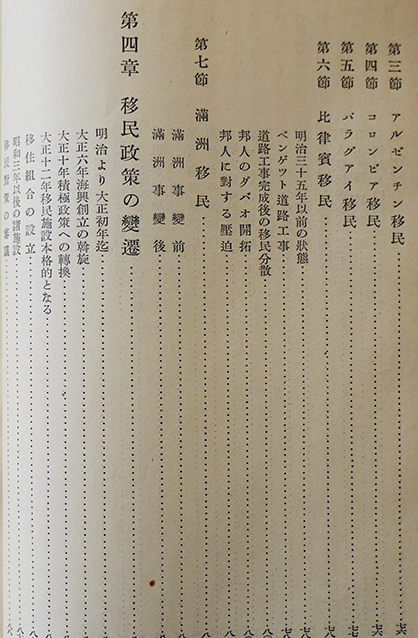 第三節 アルゼンチン移民
第四節 コロンビア移民
第五節 パラグアイ移民
第六節 比律賓移民
明治三十五年以前の狀態
ベンゲット道路工事
道路工事完成後の移民分散
邦人のダバオ開拓
邦人に對する壓迫
第七節 滿洲移民
滿洲事變前
滿洲事變後
第四章 移民政策の變遷
明治より大正初年迄
大正六年海興創立の斡旋
大正十年積極政策への轉換
大正十二年移民施設本格的となる
移住組合の設立
昭和三年以後の諸施設